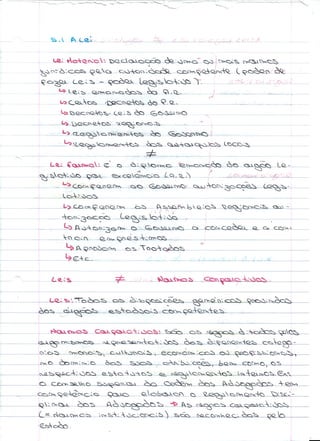 5.1 A Lei
Lei Material: Declaração de uma ou mais normas
jurídicas pela autoridade competente (poder de
fazer Leis - poder legislativo).
↳ Leis emanadas da A.R.
↳ Certos Decretos do P.R.
↳ Decretos-Leis do Governo
↳ Decretos regionais
↳ Regulamentos do Governo
↳ Regulamentos das autarquias locais
≠
Lei Formal: é o diploma emanado do órgão Le-
gislativo por excelência (A.R.)
↳ Conferem ao Governo autorizações Legis-
lativas
↳ Conferem às Assembleias Regionais au-
torização Legislativa
↳ Autorizam o Governo a conceder e a con-
trair empréstimos
↳ Aprovam os Tratados
↳ Etc.
Leis ≠ Normas Corporativas
Leis: Todas as disposições genéricas provindas
dos órgãos estaduais competentes.
Normas Corporativas: são as regras ditadas pelos
organismos representativos das diferentes catego-
rias morais, culturais, económicas ou profissionais,
no domínio das suas atribuições, bem como os
respectivos estatutos e regulamentos internos. Ex:
O conselho superior da Ordem dos Advogados tem
competência para elaborar o Regulamento Disci-
plinar dos Advogados. → As regras corporativas
(= normas institucionais) são reconhecidas pelo
Estado